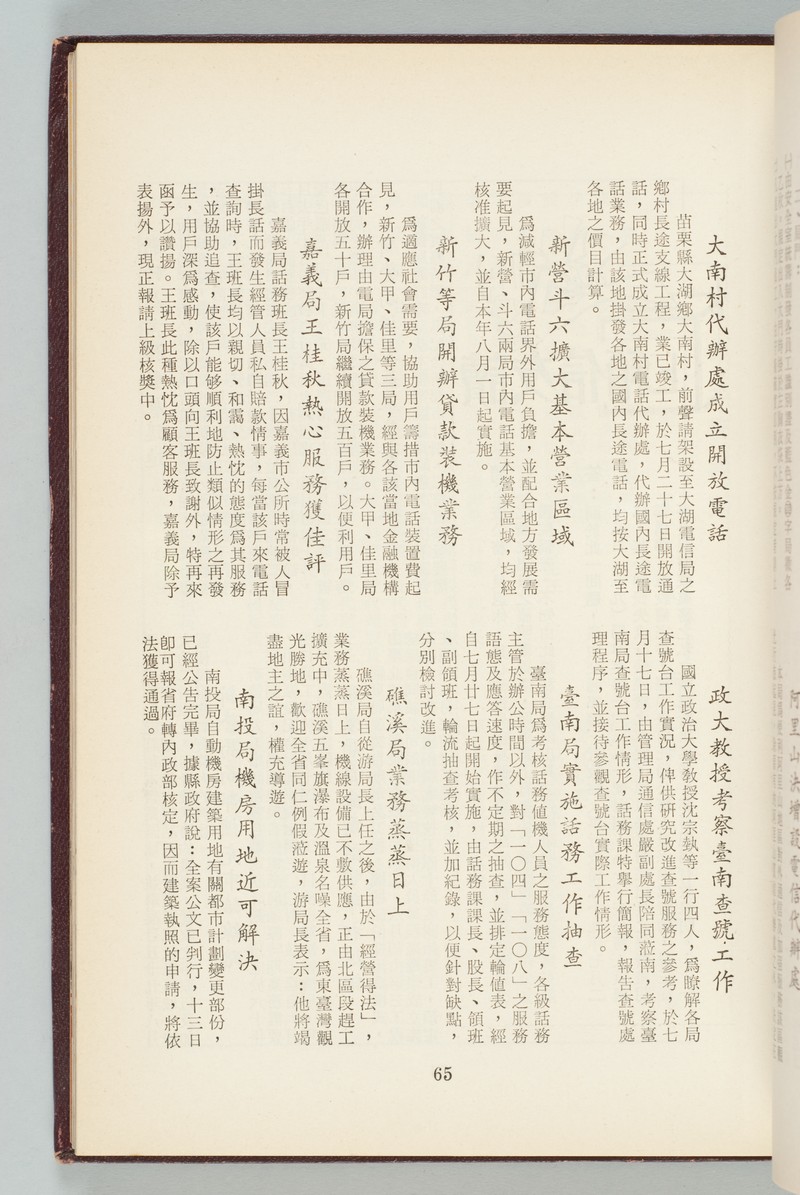 大南村代辦處成立開放電話
苗栗縣大湖鄉大南村，前聲請架設至大湖電信局之
鄉村長途支線工程，業已竣工，於七月二十七日開放通
話，同時正式成立大南村電話代辦處，代辦國內長途電
話業務，由該地掛發各地之國內長途電話，均按大湖至
各地之價目計算。
新營斗六擴大基本營業區域
為減輕市內電話界外用戶負擔，並配合地方發展需
要起見，新營、斗六兩局市內電話基本營業區域，均經
核准擴大，並自本年八月一日起實施。
新竹等局開辦貸款裝機業務
為適應社會需要，協助用戶籌措市內電話裝置費起
見，新竹、大甲、佳里等三局，經與各該當地金融機構
合作，辦理由電局擔保之貸款裝機業務。大甲、佳里局
各開放五十戶，新竹局繼續開放五百戶，以便利用戶。
嘉義局王桂秋熱心服務獲佳評
嘉義局話務班長王桂秋，因嘉義市公所時常被人冒
掛長話而發生經管人員私自賠款情事，每當該戶來電話
查詢時，王班長均以親切、和靄、熱忱的態度爲其服務
，並協助追查，使該戶能够順利地防止類似情形之再發
生，用戶深爲感動，除以口頭向王班長致謝外，特再來
函予以讚揚。王班長此種熱忱爲顧客服務，嘉義局除予
表揚外，現正報請上級核獎中。
政大教授考察臺南查號工作
國立政治大學教授沈宗執等一行四人，爲瞭解各局
查號台工作實況，俾供研究改進查號服務之參考，於七
月十七日，由管理局通信處嚴副處長陪同蒞南，考察臺
南局查號台工作情形，話務課特舉行簡報，報告查號處
理程序，並接待參觀查號台實際工作情形。
臺南局實施話務工作抽查
臺南局爲考核話務值機人員之服務態度，各級話務
主管於辦公時間以外，對「一〇四」「一〇八」之服務
語態及應答速度，作不定期之抽查，並排定輪值表，經
自七月廿七日起開始實施，由話務課課長、股長、領班
、副領班，輪流抽查考核，並加紀錄，以便針對缺點，
分別檢討改進。
礁溪局業務蒸蒸日上
礁溪局自從游局長上任之後，由於「經營得法」，
業務蒸蒸日上，機線設備已不敷供應，正由北區段趕工
擴充中，礁溪五峯旗瀑布及溫泉名噪全省，爲東臺灣觀
光勝地，歡迎全省同仁例假蒞遊，游局長表示：他將竭
盡地主之誼，權充導遊。
南投局機房用地近可解決
南投局自動機房建築用地有關都市計劃變更部份，
已經公告完畢，據縣政府說：全案公文已判行，十三日
卽可報省府轉內政部核定，因而建築執照的申請，將依
法獲得通過。
65